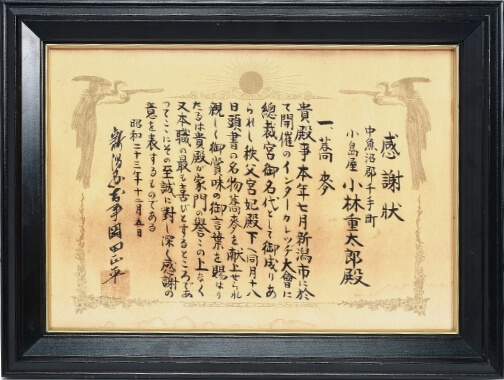 感謝状
中魚沼郡千手町
小島屋 小林重太郎殿
一、蕎麥
貴殿事本年七月新潟市に於
て開催のインターカレッヂ大會に
總裁宮御名代として御成りあ
られし秩父宮妃殿下へ同月十八
日頭書の名物蕎麥を献上せられ
親しく御賞味の御言葉を賜はり
たるは貴殿が家門の譽この上なく
又本職の最も喜びとするところであ
つてここにその至誠に対し深く感謝の
意を表するものである
昭和二十三年十二月五日
新潟縣知事岡田正平